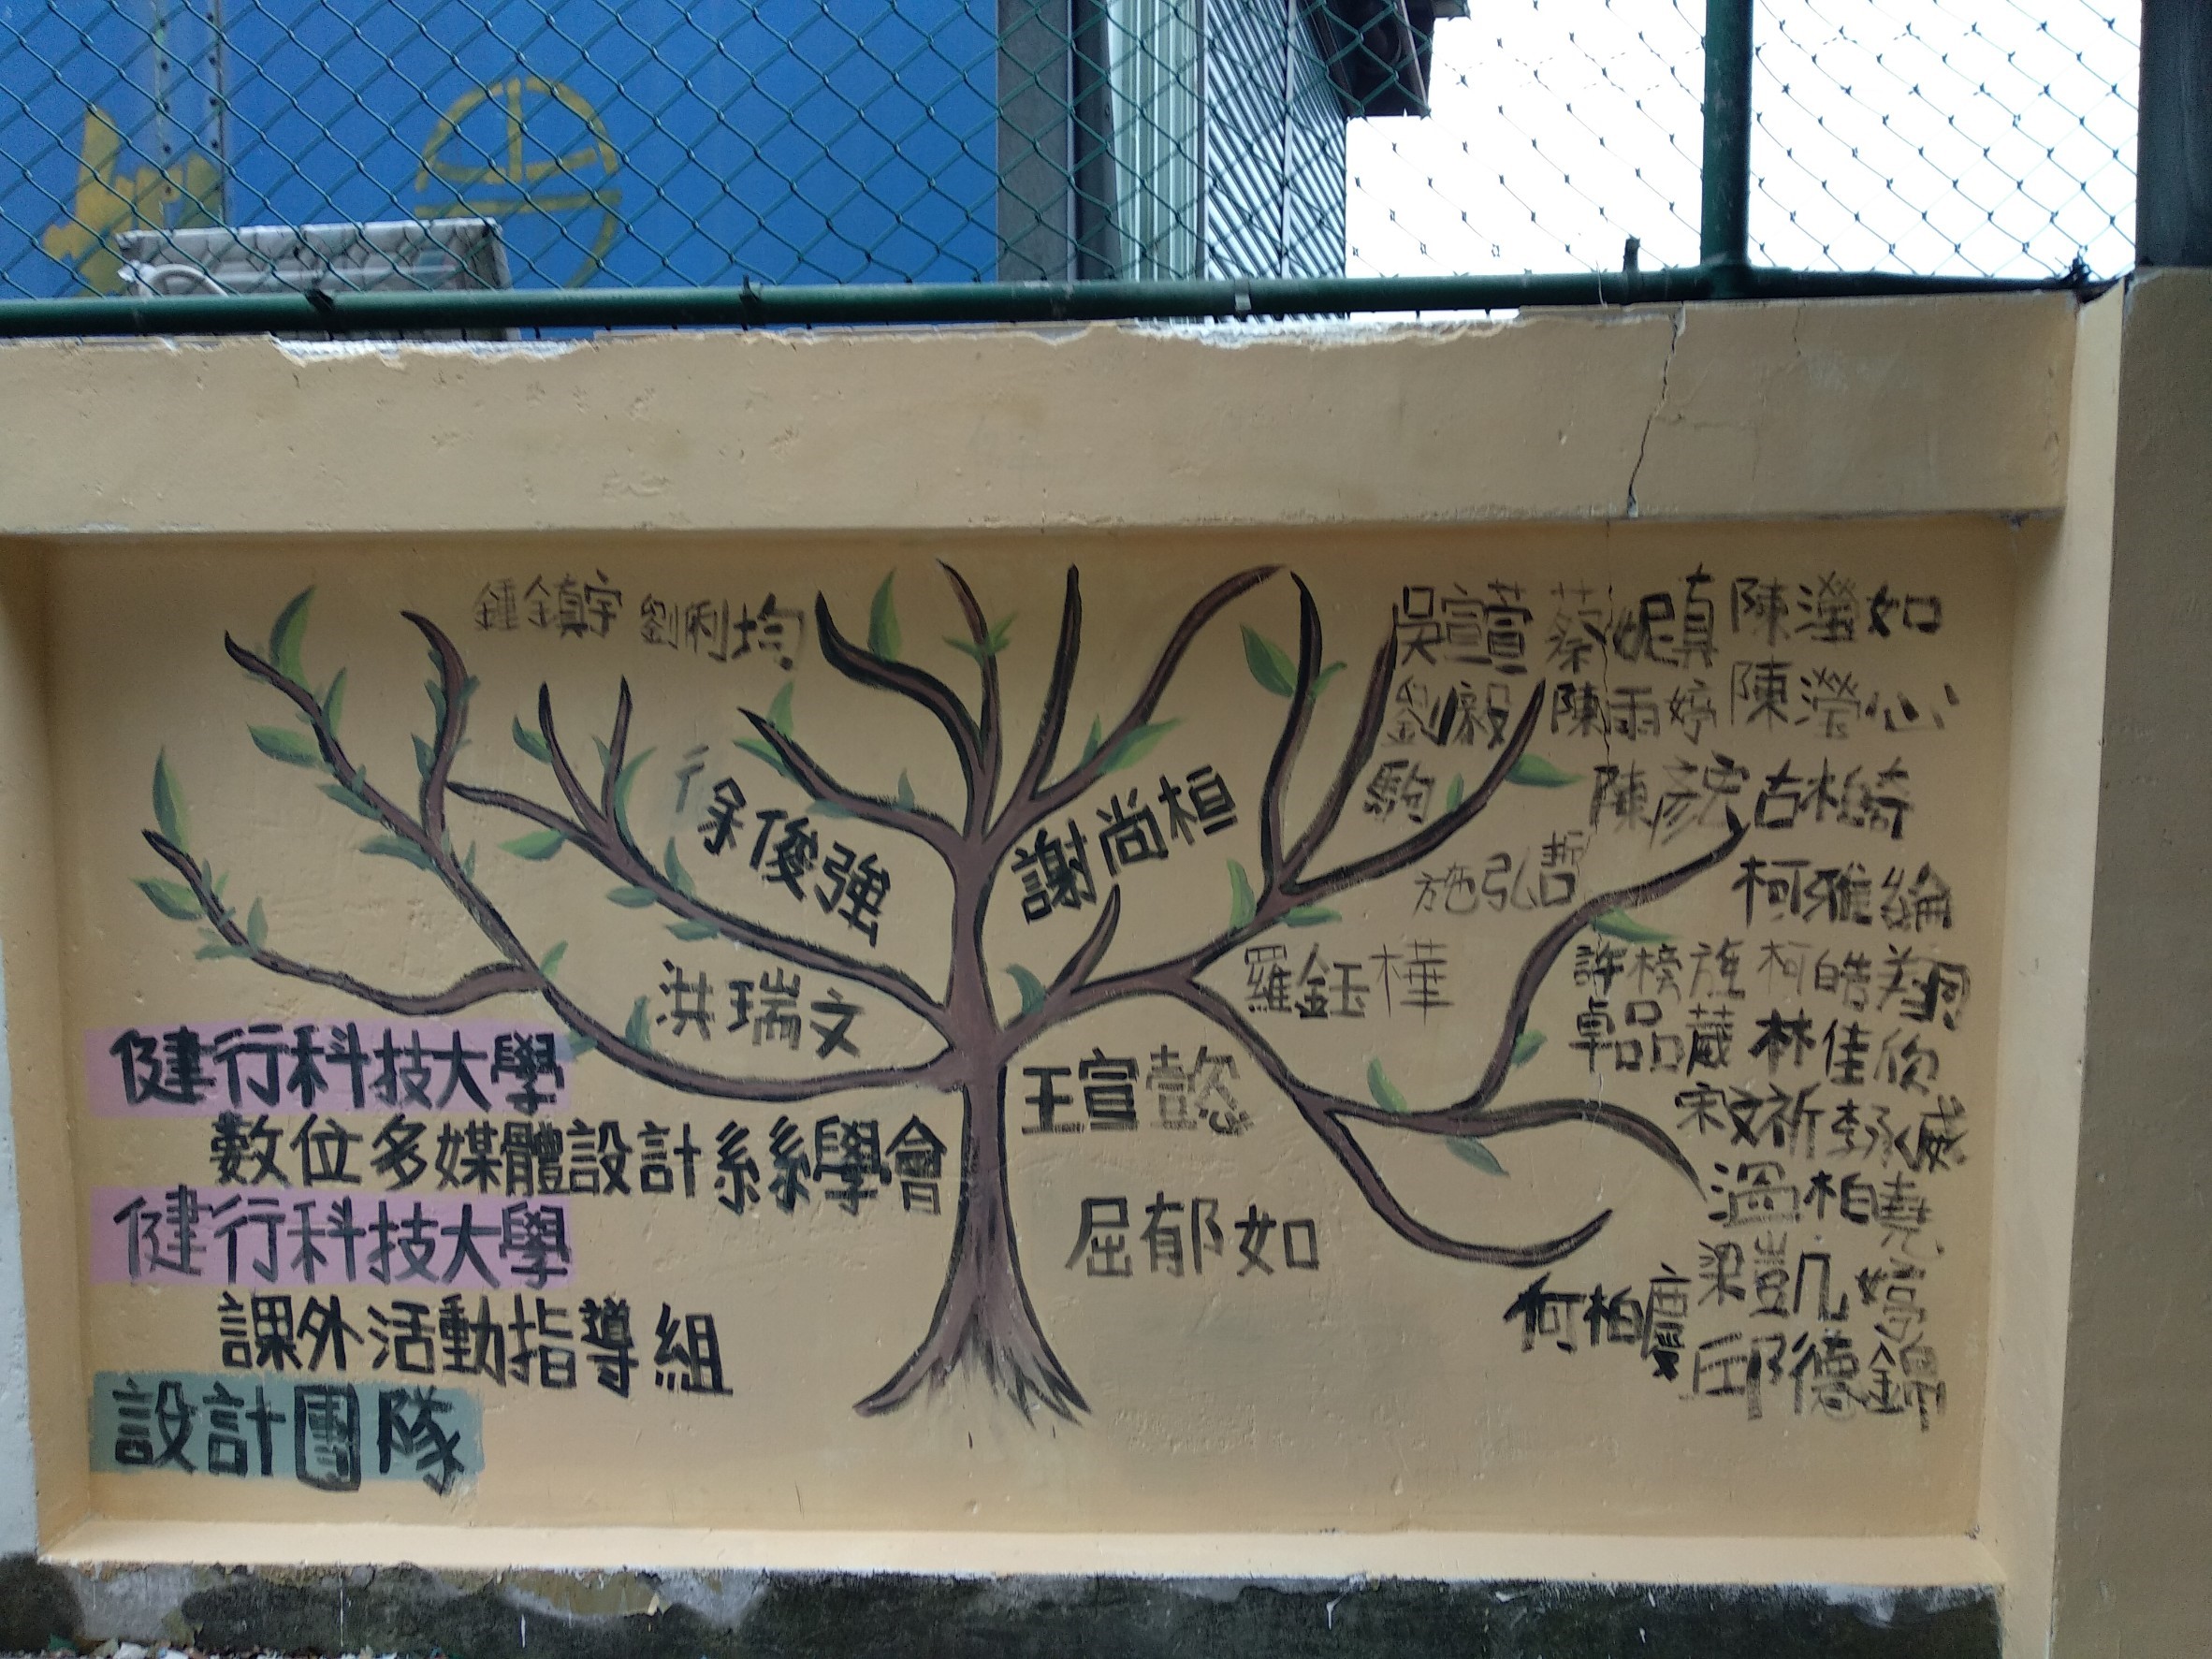 鍾鎮宇 劉俐均
徐俊強
洪瑞文
謝尚桓
王宣懿
屈郁如
羅鈺樺
施弘哲
吳宣萱 蔡妮真 陳瀅如
劉毅 陳雨婷 陳瀅心
駒
陳彥宏 古椲綺
柯雅綸
許榜旌 柯皓翔
卓品葳 林佳欣
宋文祈 李承威
溫柏堯
梁凱凡 婷
何柏慶 邱德錦
健行科技大學
數位多媒體設計系系學會
健行科技大學
課外活動指導組
設計團隊